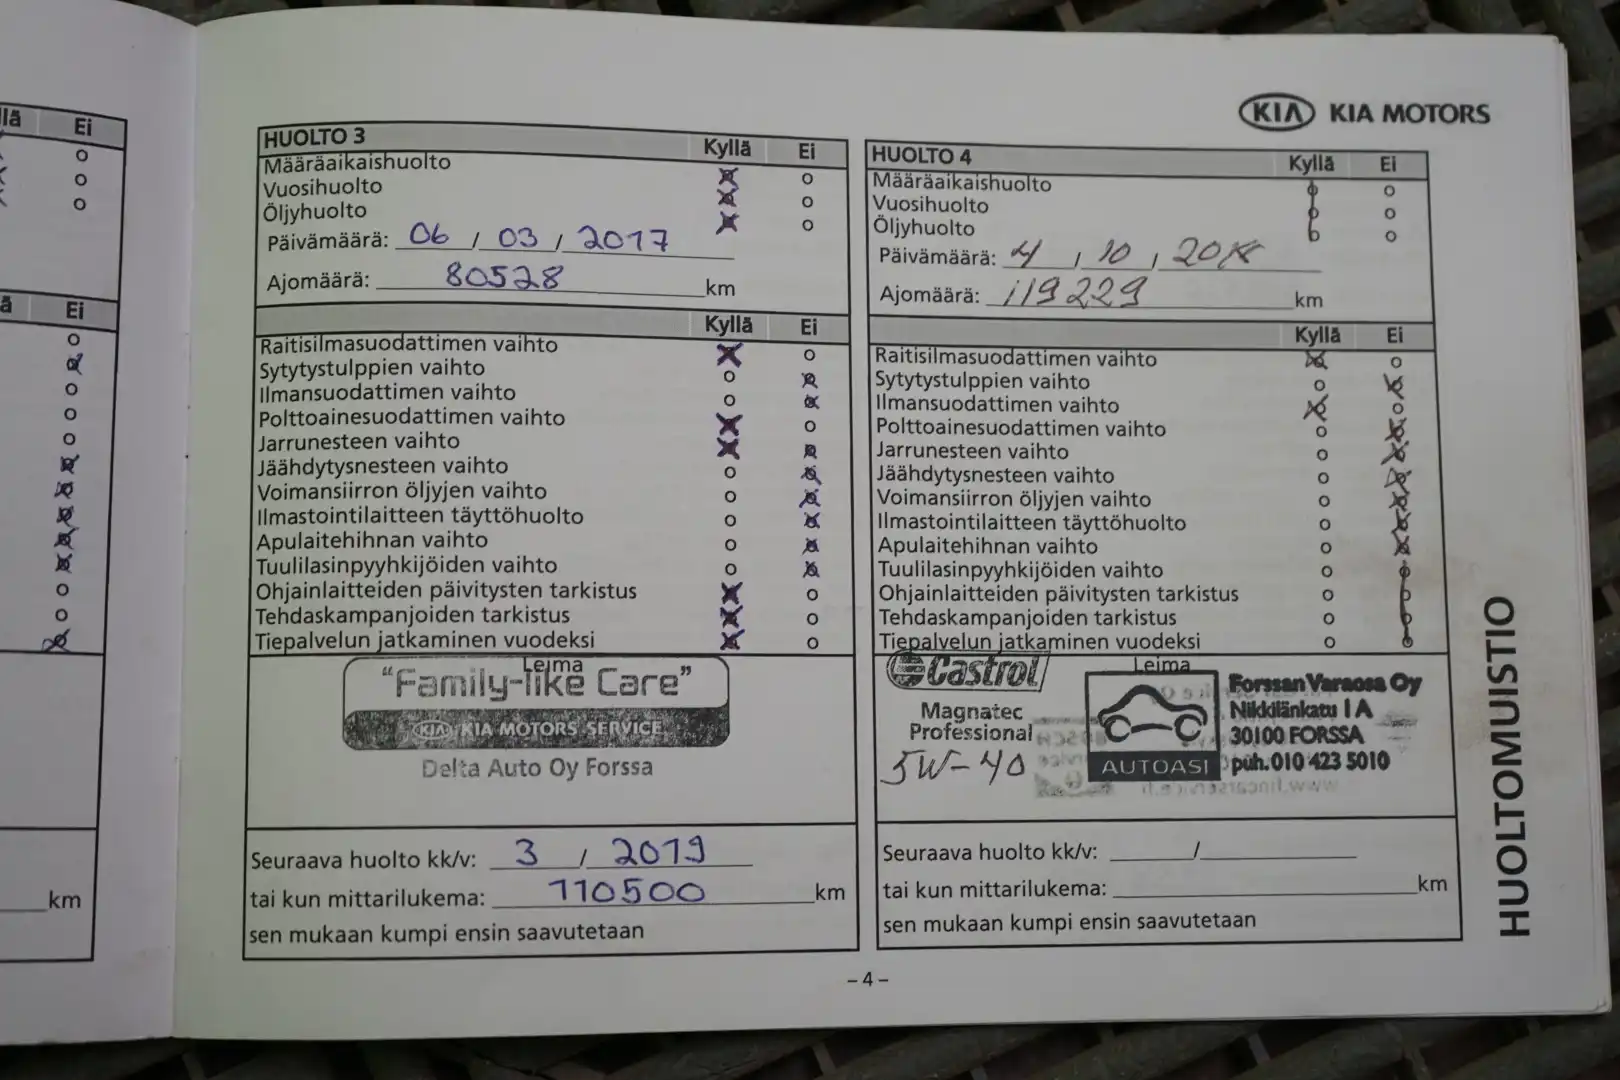 llä Ei
ä Ei
km
KIA KIA MOTORS
HUOLTO 3 Kyllä Ei
Määräaikaishuolto
Vuosihuolto
Öljyhuolto
Päivämäärä: 06 / 03 / 2017
Ajomäärä: 80528 km
Kyllä Ei
Raitisilmasuodattimen vaihto
Sytytystulppien vaihto
Ilmansuodattimen vaihto
Polttoainesuodattimen vaihto
Jarrunesteen vaihto
Jäähdytysnesteen vaihto
Voimansiirron öljyjen vaihto
Ilmastointilaitteen täyttöhuolto
Apulaitehihnan vaihto
Tuulilasinpyyhkijöiden vaihto
Ohjainlaitteiden päivitysten tarkistus
Tehdaskampanjoiden tarkistus
Tiepalvelun jatkaminen vuodeksi
Leima
"Family-like Care"
KIA KIA MOTORS SERVICE
Delta Auto Oy Forssa
Seuraava huolto kk/v: 3 / 2019
tai kun mittarilukema: 110500 km
sen mukaan kumpi ensin saavutetaan
HUOLTO 4 Kyllä Ei
Määräaikaishuolto
Vuosihuolto
Öljyhuolto
Päivämäärä: 4 / 10 / 2018
Ajomäärä: 119229 km
Kyllä Ei
Raitisilmasuodattimen vaihto
Sytytystulppien vaihto
Ilmansuodattimen vaihto
Polttoainesuodattimen vaihto
Jarrunesteen vaihto
Jäähdytysnesteen vaihto
Voimansiirron öljyjen vaihto
Ilmastointilaitteen täyttöhuolto
Apulaitehihnan vaihto
Tuulilasinpyyhkijöiden vaihto
Ohjainlaitteiden päivitysten tarkistus
Tehdaskampanjoiden tarkistus
Tiepalvelun jatkaminen vuodeksi
Leima
Castrol
Magnatec
Professional
5W-40
AUTOASI
Forssan Varaosa Oy
Nikkilänkatu 1 A
30100 FORSSA
puh. 010 423 5010
Seuraava huolto kk/v: /
tai kun mittarilukema: km
sen mukaan kumpi ensin saavutetaan
HUOLTOMUISTIO
– 4 –